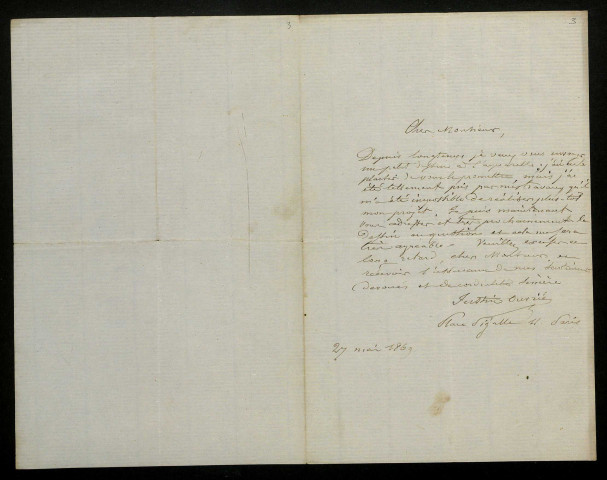 3
3
Cher Monsieur,
Depuis longtemps je veux vous envoyer
un petit dessin à l'aquarelle, j'ai eu le
plaisir de vous le promettre mais j'ai
été tellement pris par mes travaux qu'il
m'a été impossible de réaliser plus tôt
mon projet. Je puis maintenant
vous adresser et très prochainement le
dessin en question et cela me sera
très agréable. Veuillez excuser ce
long retard, cher Monsieur, et
recevoir l'assurance de mes
et de cordialité sincère
Justin Ouvrié
Place Pigalle 11 Paris
27 mai 186